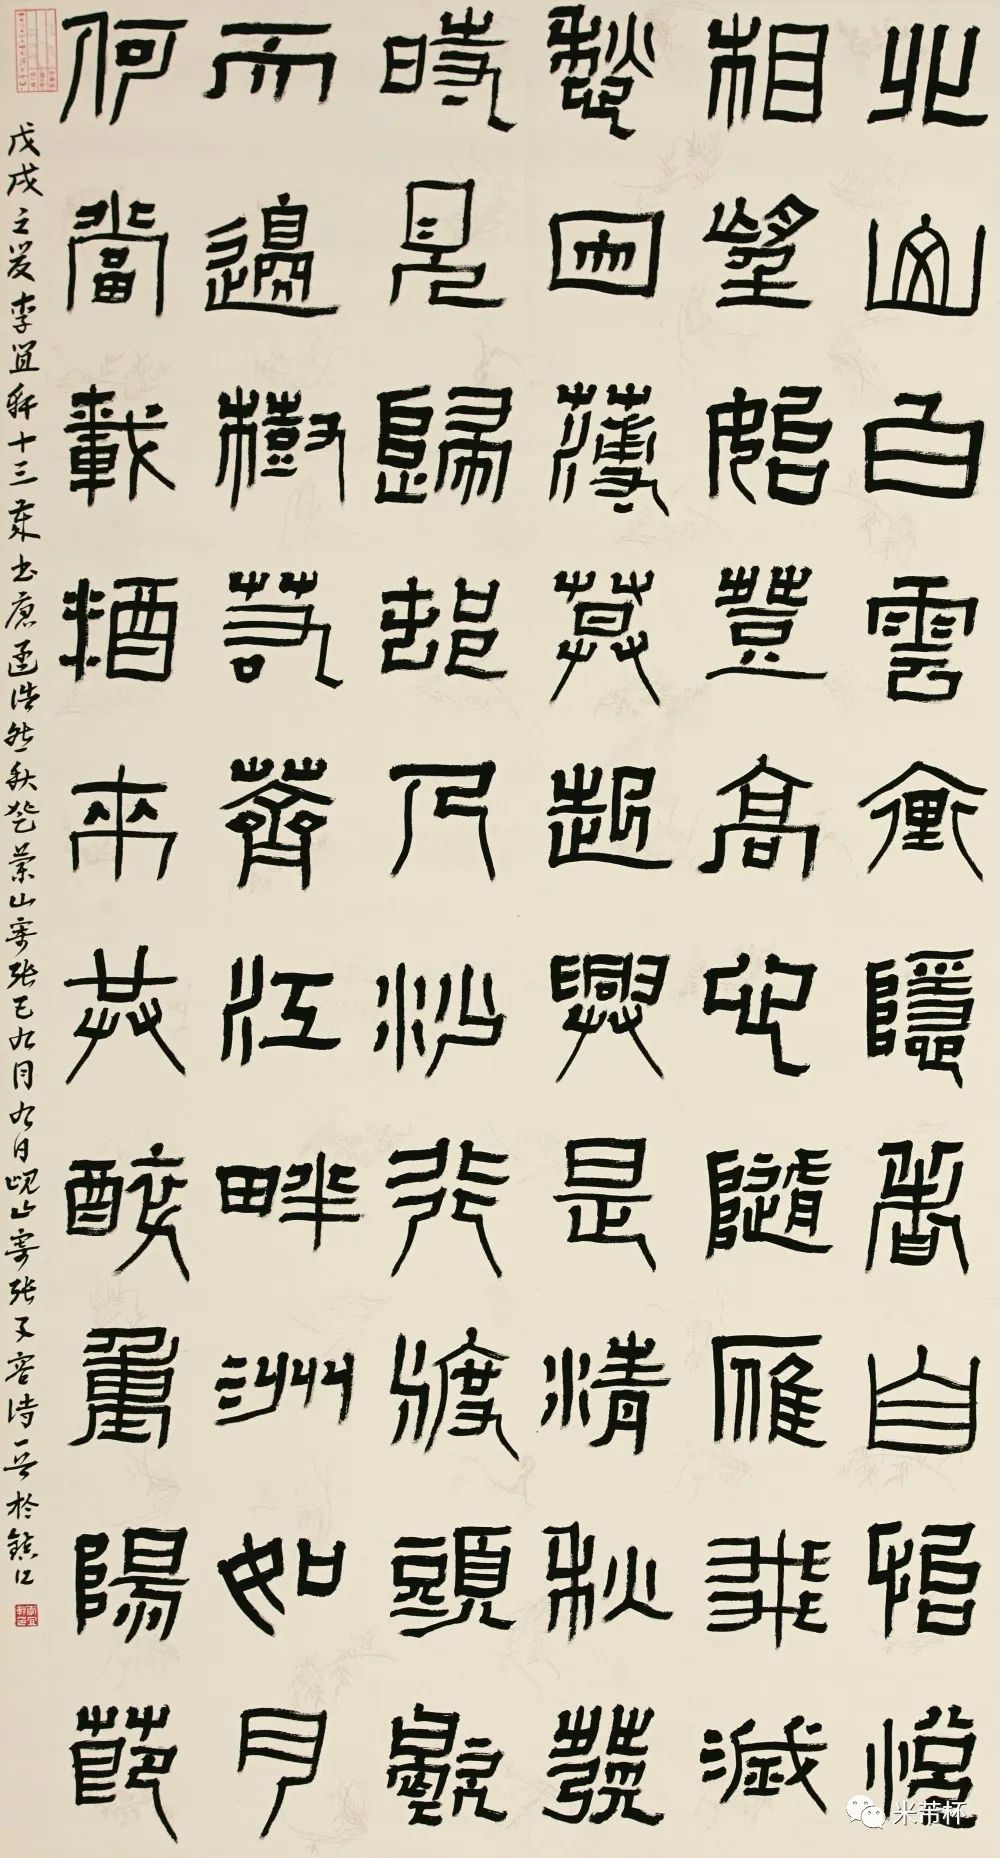 北山白雲裏隱者自怡悅
相望始登高心隨雁飛滅
愁因薄暮起興是清秋發
時見歸邨人沙行渡頭歇
天邊樹若薺江畔洲如月
何當載酒來共醉重陽節
戊戌之夏李宜軒十三歲書唐孟浩然秋登蘭山寄張五九月九日峴山寄張子容詩一首於鎮江
米芾杯